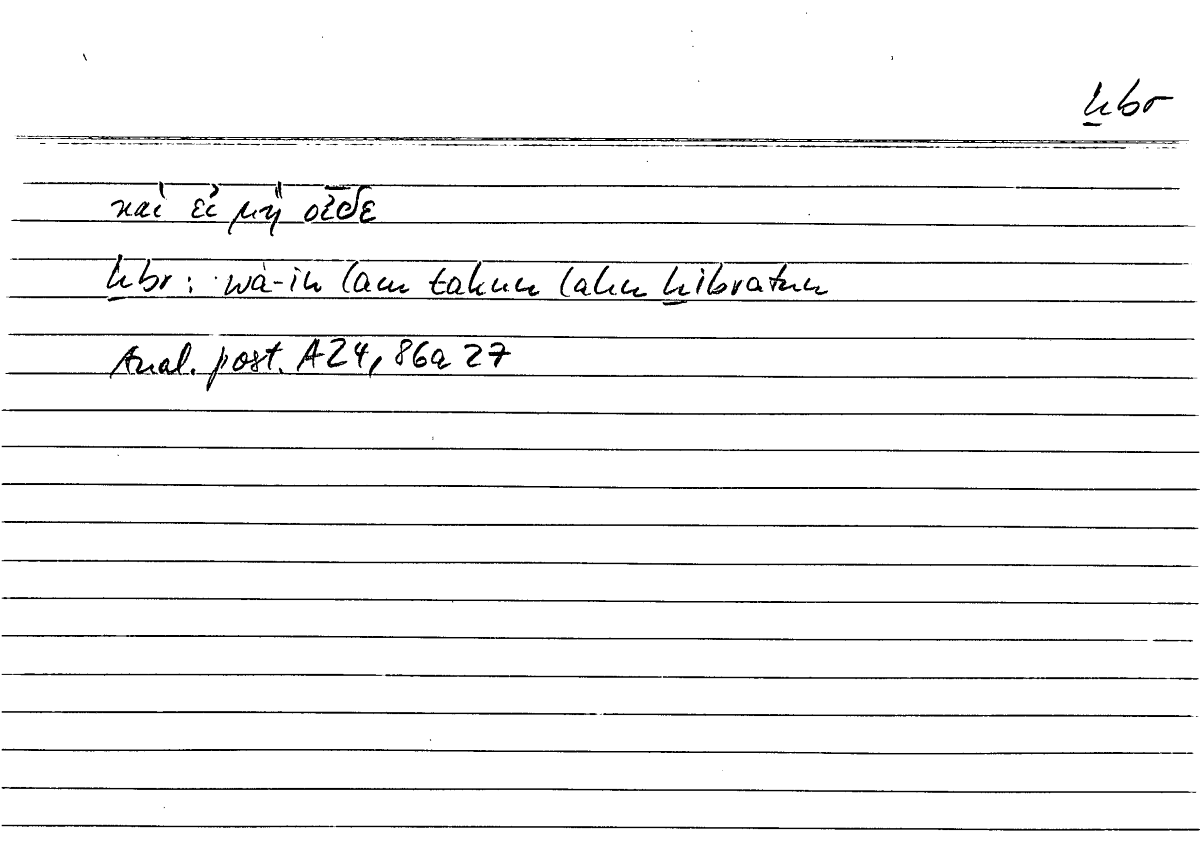 ḫbr
καὶ εἰ μὴ οἶδε
ḫbr: wa-in lam takun lahu ḫibratun
Anal. post. A24, 86a 27